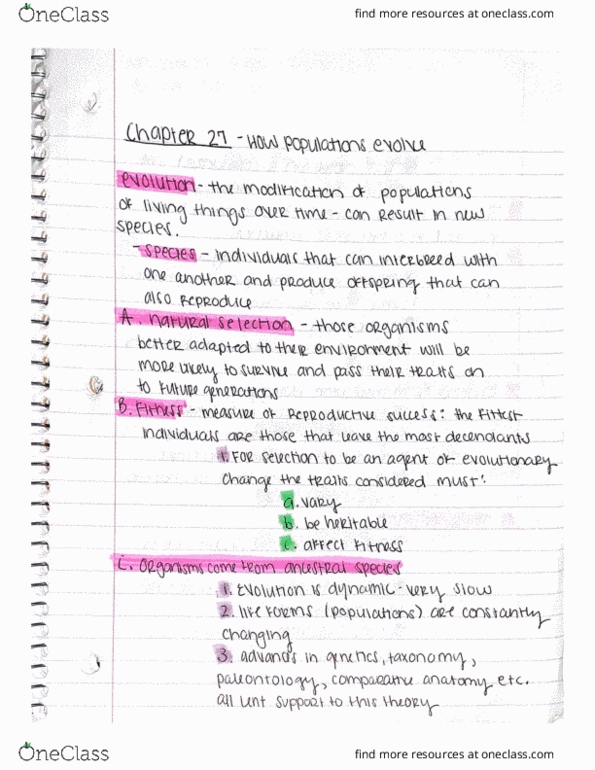 OneClass
find more resources at oneclass.com
Chapter 27 - How populations evolve
evolution - the modification of populations
of living things over time - can result in new
species.
- species - individuals that can interbreed with
one another and produce offspring that can
also reproduce
A. natural selection - those organisms
better adapted to their environment will be
more likely to survive and pass their traits on
to future generations
B. Fitness - measure of reproductive success: the fittest
individuals are those that leave the most decendants
1. For selection to be an agent of evolutionary
change the traits considered must:
a. vary
b. be heritable
c. affect fitness
C. organisms come from ancestral species
1. Evolution is dynamic - very slow
2. life forms (populations) are constantly
changing
3. advances in genetics, taxonomy,
paleontology, comparative anatomy etc.
all lent support to this theory
OneClass
find more resources at oneclass.com